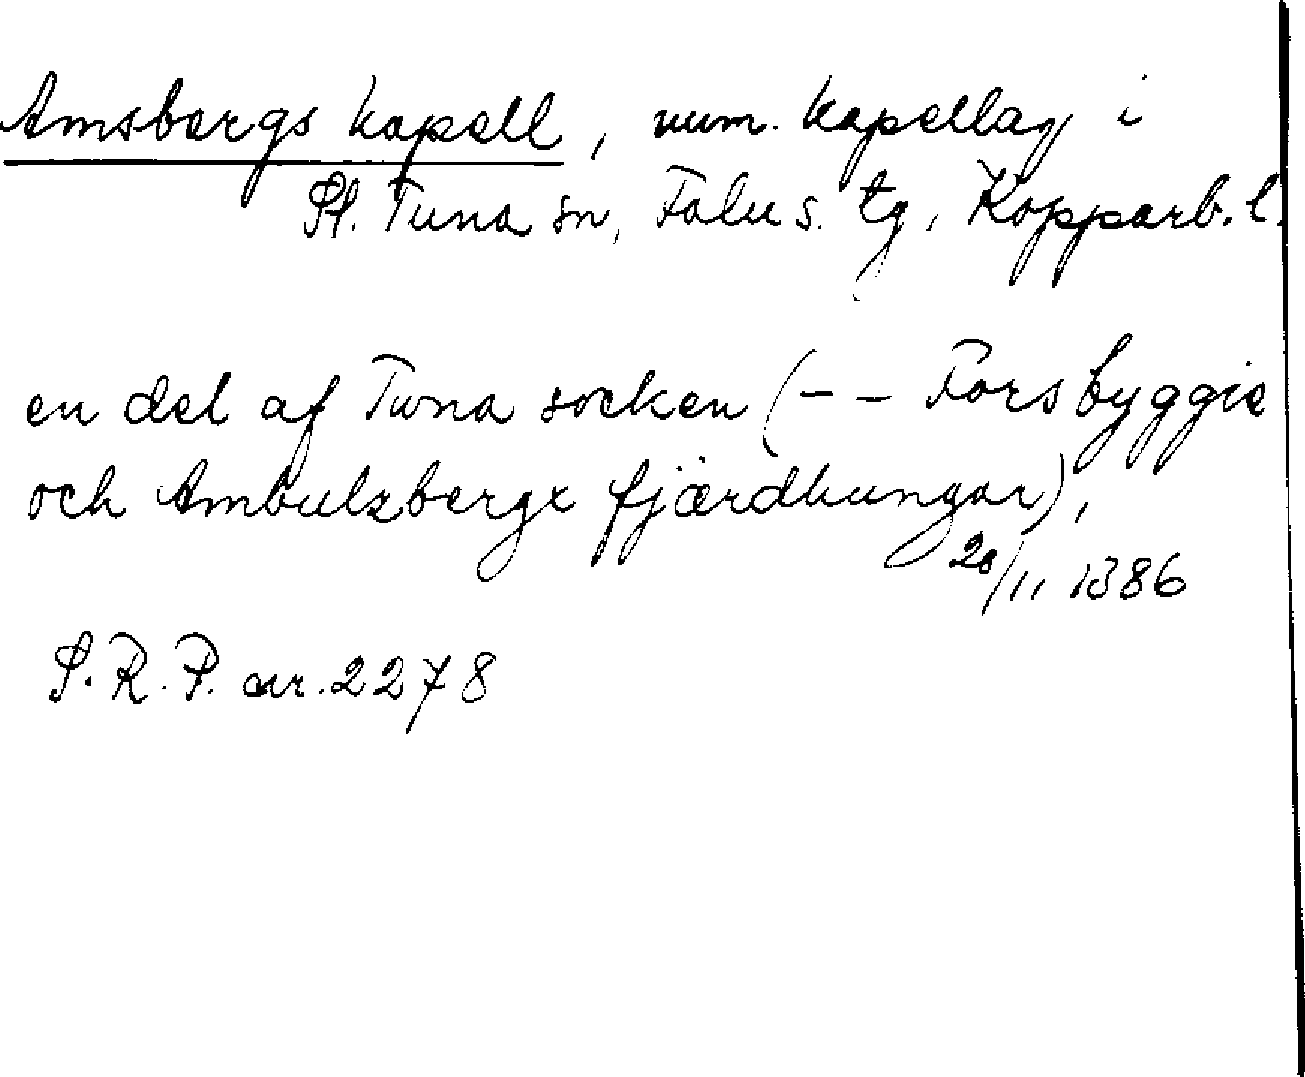 Amsbergs kapell, num. kapellag i
St. Tuna sn, Falu s. tg, Kopparb. l.
en del af Twna socken (– – Forsbyggie
och Ambulzbergx fjærdhungar),
20/11 1386
S.R.P. nr. 2278